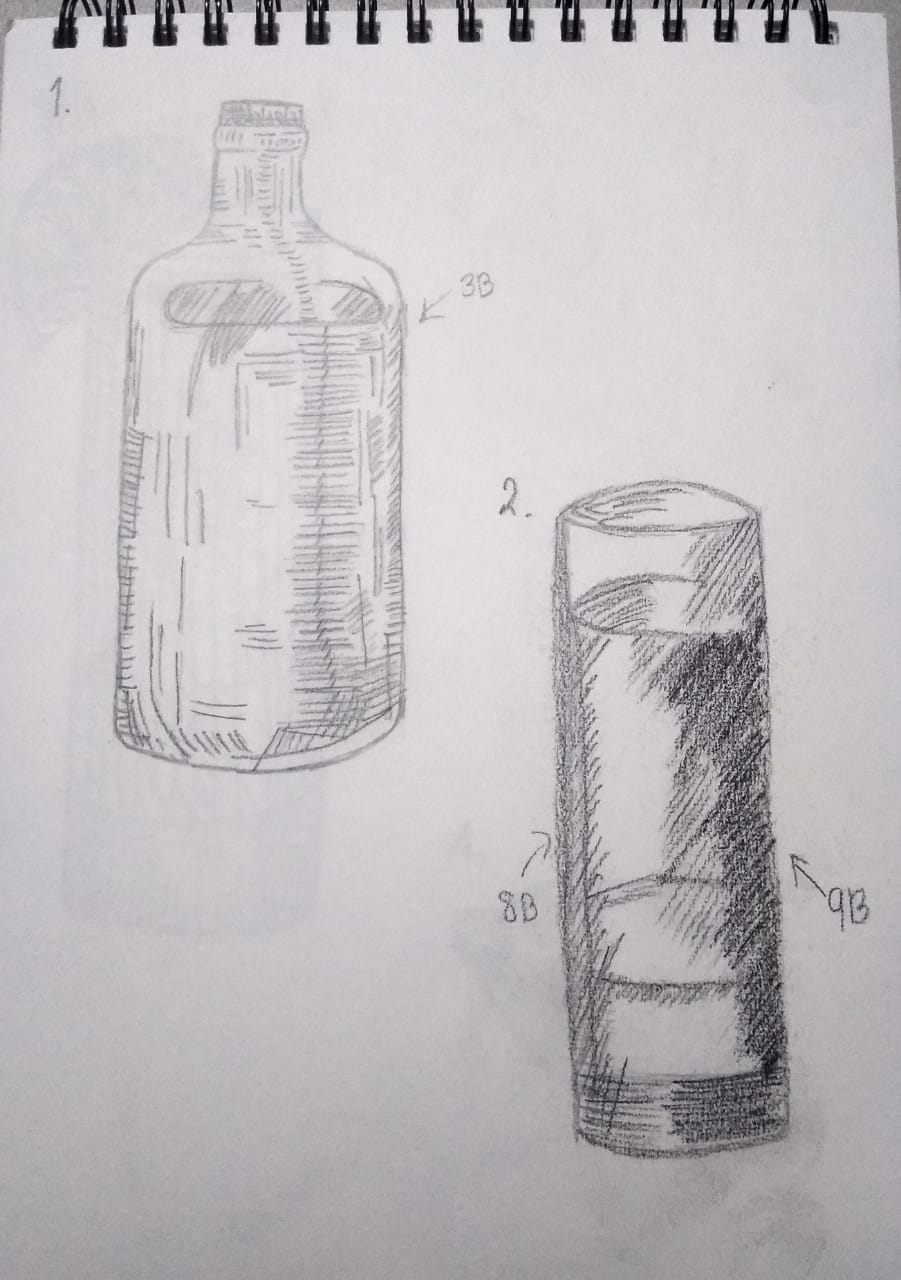 1.
3B
2.
8B
9B